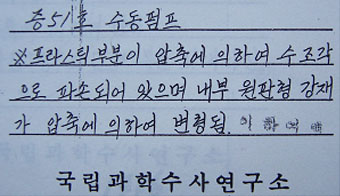 증51호 수동펌프
※프라스틱부분이 압축에 의하여 수조각
으로 파손되어 있으며 내부 원판형 강재
가 압축에 의하여 변형됨. 이 하 여 백
국립과학수사연구소